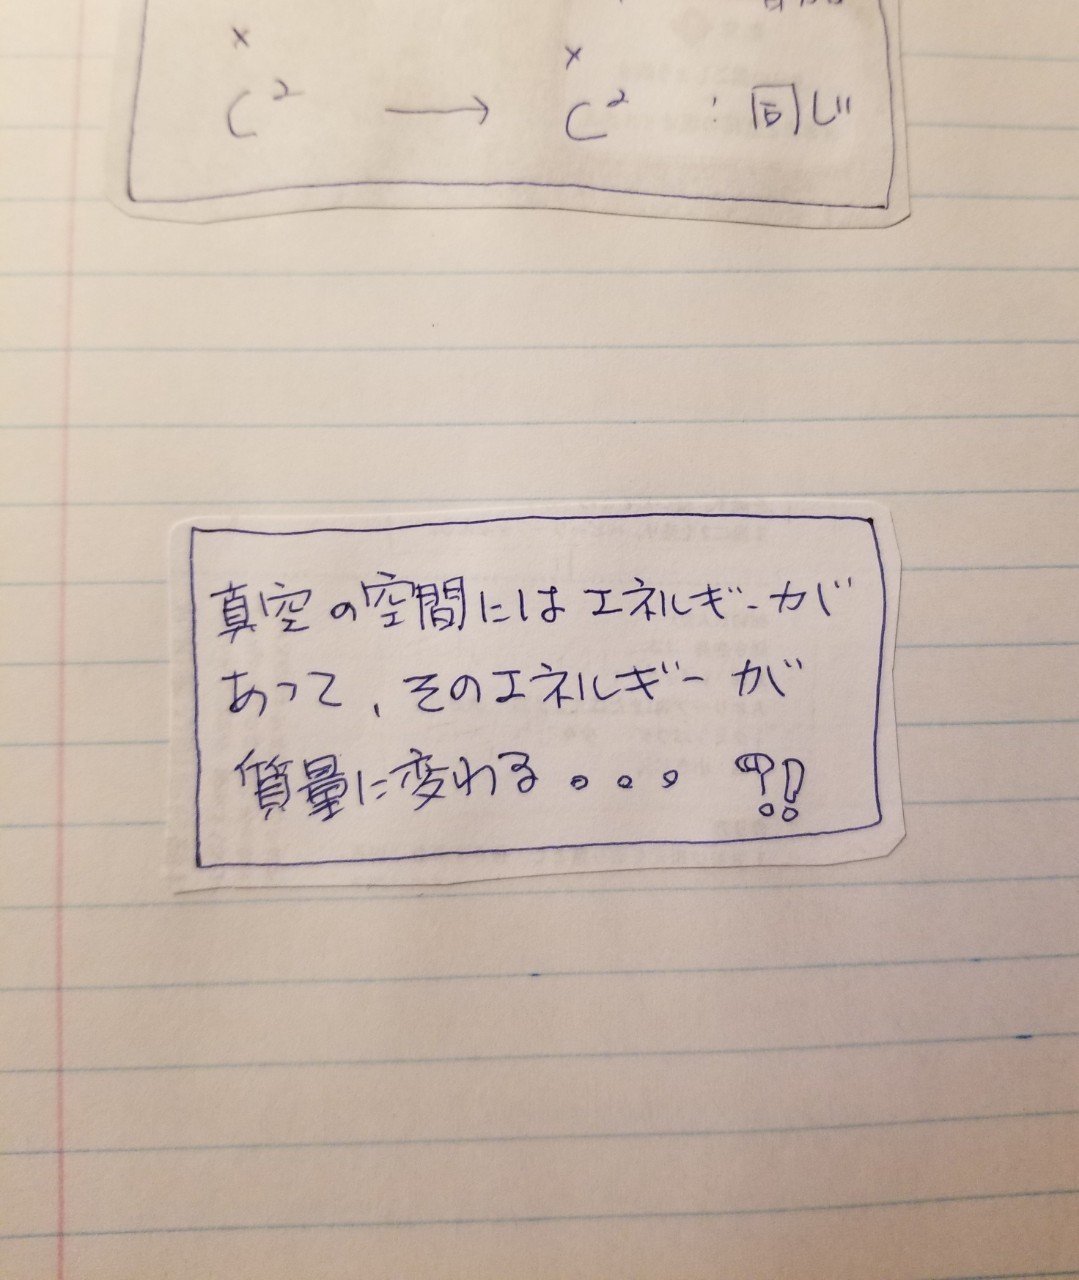 ×
×
C² → C² : 同じ
真空の空間にはエネルギーが
あって、そのエネルギーが
質量に変わる。。。⁇!